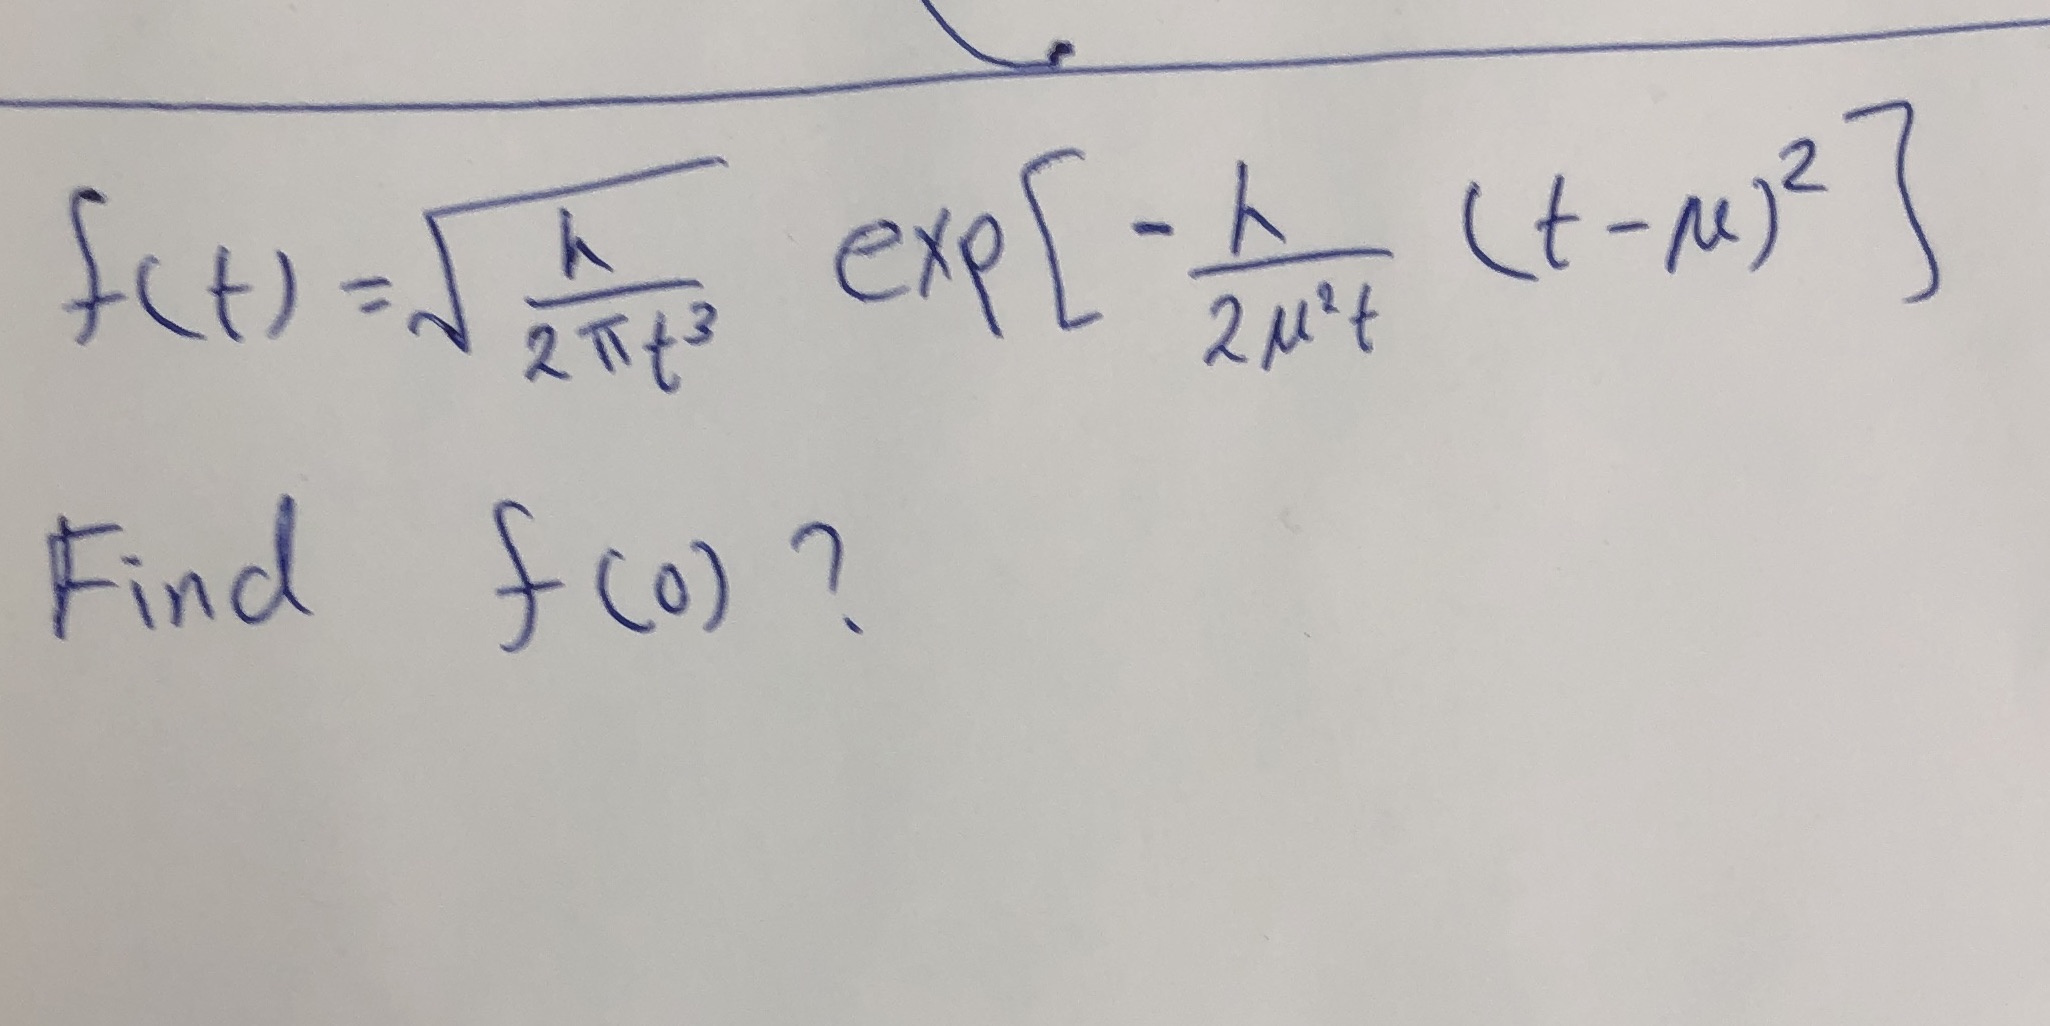 f(t) = √(λ/(2πt³)) exp[-λ/(2μ²t) (t-μ)²]
Find f(0)?